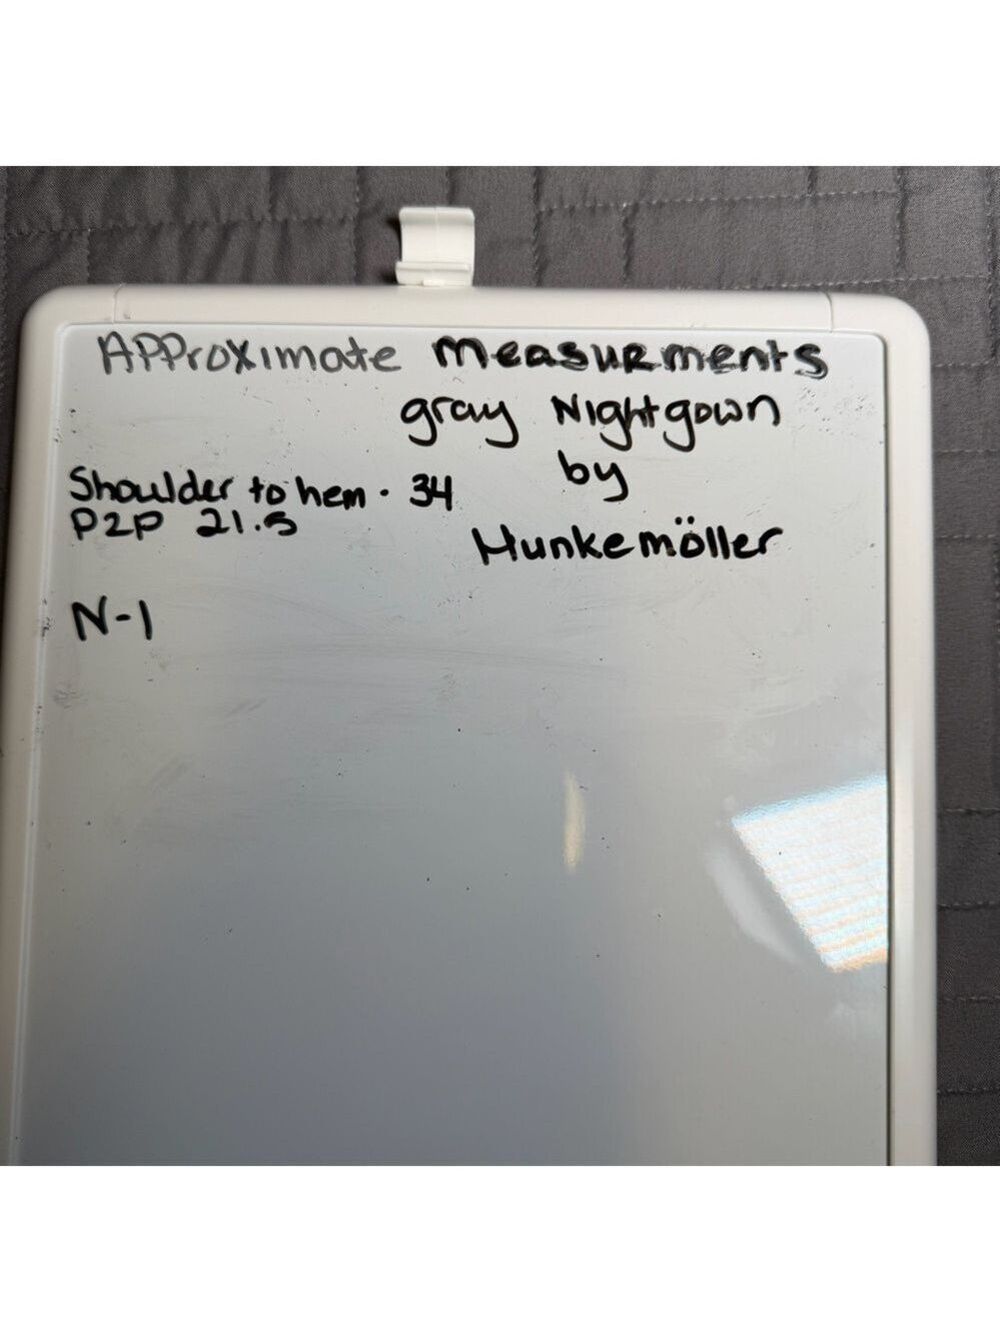 APProximate measurments
gray Nightgown
by
Hunkemöller
Shoulder to hem · 34
P2P 21.5
N-1